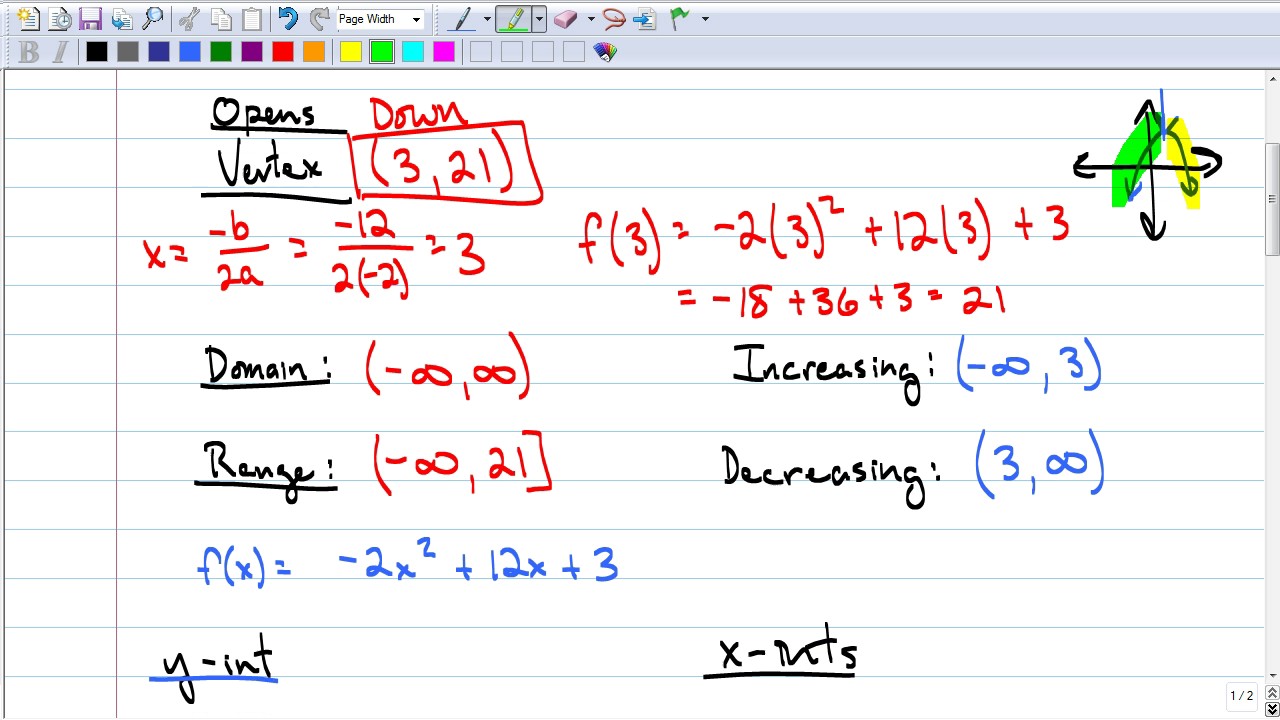 Page Width
B I
Opens Down
Vertex (3, 21)
x = -b/2a = -12/2(-2) = 3
f(3) = -2(3)² + 12(3) + 3
= -18 + 36 + 3 = 21
Domain: (-∞, ∞)
Increasing: (-∞, 3)
Range: (-∞, 21]
Decreasing: (3, ∞)
f(x) = -2x² + 12x + 3
y-int
x-ints
1 / 2